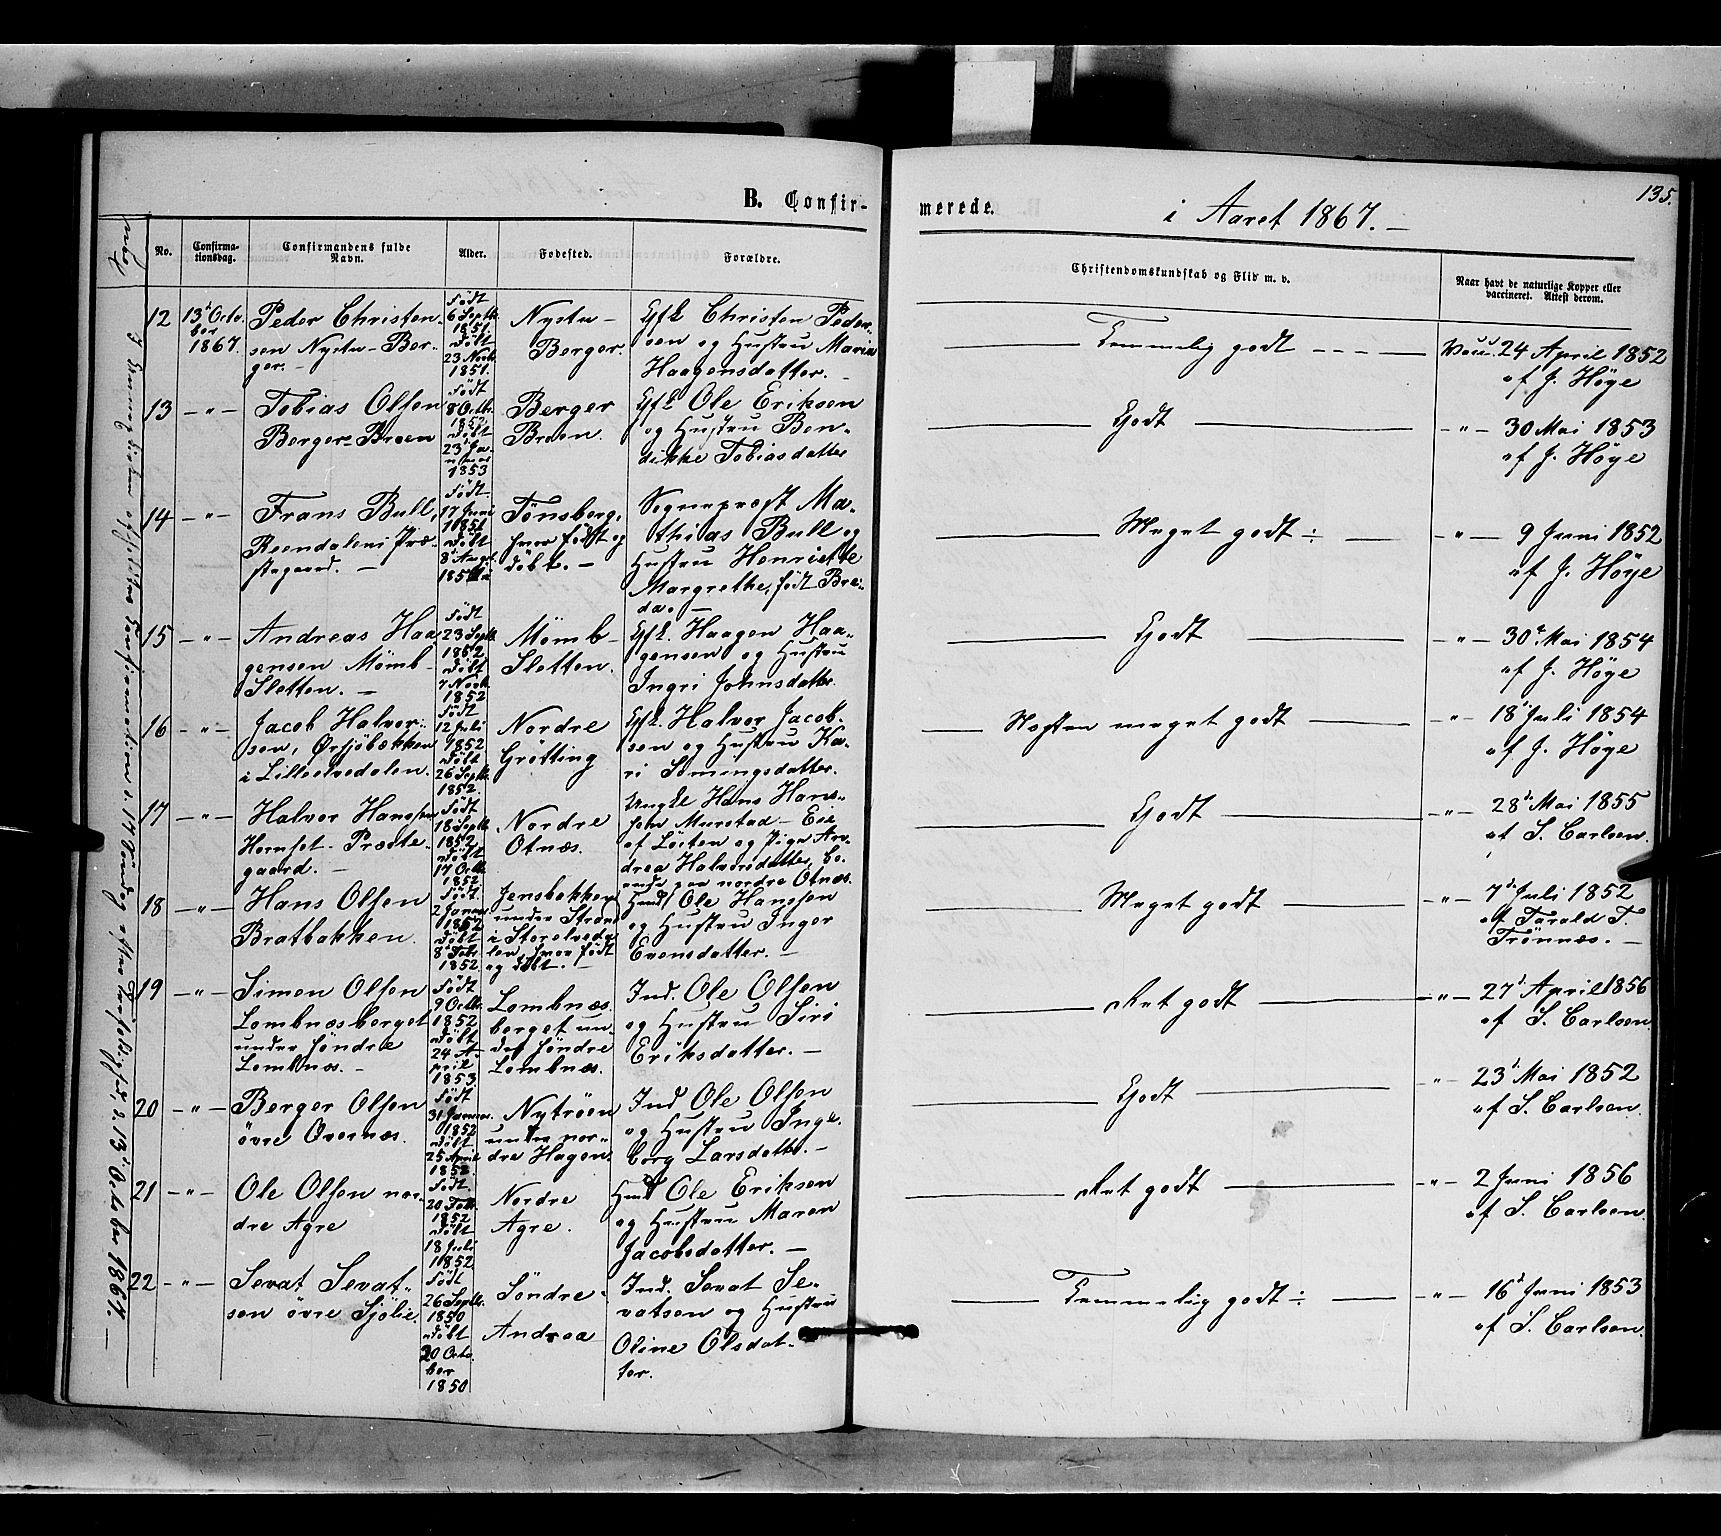 B. Confir-
merede.
i Aaret 1867.
135.
No.
Confirma-
tionsdag.
Confirmandens fulde
Navn.
Alder.
Fødested.
Forældre.
Christendomskundskab og Flid m. v.
Naar havt de naturlige Kopper eller
vaccineret. Attest derom.
12
13de Octo-
ber
1867.
Peder Christen-
sen Nystu-Ber-
ger. —
Født
6 Septb.
1851.
Døbt
23 Novb.
1851.
Nystu-
Berger.
Gfk Christen Peder-
sen og Hustru Maria
Haagensdatter. —
Temmelig godt
Vacc. 24 April 1852
af J. Höye
13 — " —
Tobias Olsen
Berger-Broen
Født
8 Octb.
1852
Døbt
23 Ja-
nuar
1853
Berger
Broen.
Gfk Ole Eriksen
og Hustru Ben-
dikke Tobiasdatter
Godt
— " — 30 Mai 1853
af J. Höye
14 — " —
Frans Bull,
Reendalens Præ-
stegaard. —
Født
17 Juni
1851
Døbt
8de Augt.
1851
Tönsberg,
hvor født og
döbt. —
Sogneprest Ma-
thias Bull og
Hustru Henriette
Margrethe, født Bre-
da. —
Meget godt ÷
— " — 9 Juni 1852
af J. Höye
15 — " —
Andreas Haa
gensen Mömb-
Sletten. —
Født
23 Septb.
1852
Døbt
7 Novb.
1852
Mömb-
Sletten.
Gfk. Haagen Haa-
gensen og Hustru
Ingri Johnsdatter
Godt
— " — 30te Mai 1854
af J. Höye
16 — " —
Jacob Halvor-
sen, Örsjöbækken
i Lilleelvedalen.
Født
12 Juli
1852
Døbt
26 Septb.
1852.
Nordre
Grötting
Gfk. Halvor Jacob-
sen og Hustru Ka-
ri Simingsdatter.
Næsten meget godt
— " — 18de Juli 1854
af J. Höye
17 — " —
Halvor Hanssen
Hornset-Præste-
gaard. —
Født
18 Septb.
1852
Døbt
17 Octb.
1852
Nordre
Otnæs.
Ungk Hans Hans-
sen Murstad-Eie
af Löiten og Pige An-
drea Halvorsdatter, bo-
ende paa nordre Otnæs.
Godt
— " — 28de Mai 1855
af S. Carlsen.
18 — " —
Hans Olsen
Bratbakken.
Født
2 Januar
1852
Døbt
8de Feb.
1852.
Jensbakken
under Strand
i Storelveda-
len, hvor født
og döbt. —
Husm Ole Hanssen
og Hustru Inger
Evensdatter. —
Meget godt
— " — 7de Juli 1852
af Tarald T.
Trönnæs. —
19 — " —
Simen Olsen
Lombnæsberget
under söndre
Lombnæs. —
Født
9 Octb.
1852
Døbt
24 A-
pril
1853
Lombnæs
berget un-
der söndre
Lombnæs.
Ind. Ole Olsen
og Hustru Siri
Eriksdatter. —
Ret godt
— " — 27de April 1856
af S. Carlsen
20 — " —
Berger Olsen
övre Overnæs.
Født
31 Januar.
1852
Døbt
25 April
1852.
Nytröen
under nor-
dre Hagen.
Ind Ole Olsen
og Hustru Inge-
borg Larsdatter. —
Godt
— " — 23de Mai 1852
af S. Carlsen.
21 — " —
Ole Olsen nor-
dre Agre
Født
20 Feb.
1852
Døbt
18 Juli
1852.
Nordre
Agre.
Husm Ole Eriksen
og Hustru Maren
Jacobsdatter. —
Ret godt
— " — 2 Juni 1856
af S. Carlsen.
22 — " —
Sevat Sevat-
sen övre Sjölie.
Født
26 Septb.
1850
Døbt
20 Octo-
ber
1850
Söndre
Andraa
Ind. Sevat Se-
vatsen og Hustru
Oline Olsdat-
ter.
Temmelig godt ÷
— " — 16de Juni 1853
af S. Carlsen.